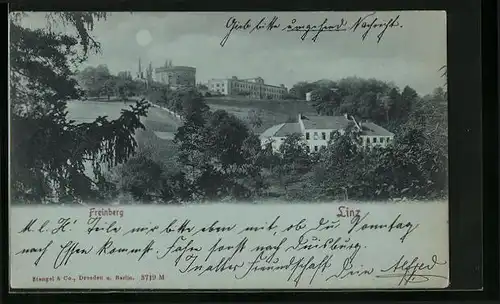 Gieb bitte umgehend Nachricht.
Freinberg
Linz
M. l. K! Teile mir bitte eben mit, ob du Sonntag
nach Essen kommst. Fahre sonst nach Duisburg.
In alter Freundschaft Dein Alfred
Stengel & Co., Dresden u. Berlin. 3719 M